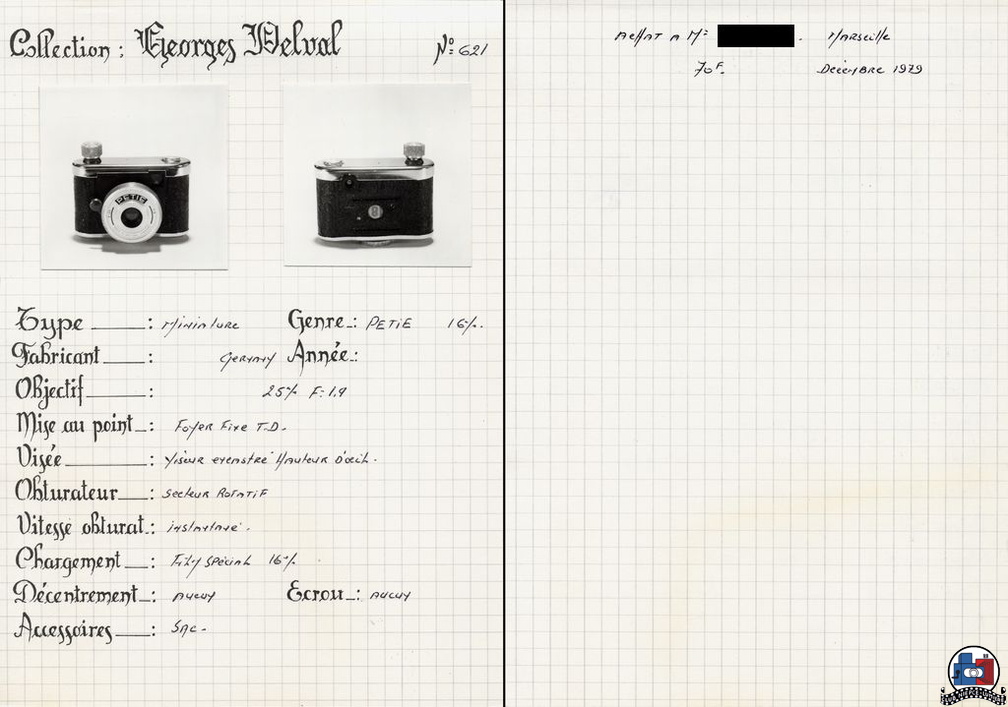 Collection : Georges Delval
Nº 621
PETIE
Type : Miniature Genre : PETIE 16%.
Fabricant : Germany Année :
Objectif : 25% F: 1.9
Mise au point : Foyer Fixe T.D.
Visée : Viseur encastré Hauteur d'œil.
Obturateur : Secteur Rotatif
Vitesse obturat : instantané.
Chargement : Film spécial 16%.
Décentrement : Aucun Ecrou : Aucun
Accessoires : SAC -
Achat a Mr . Marseille
70F. Décembre 1979